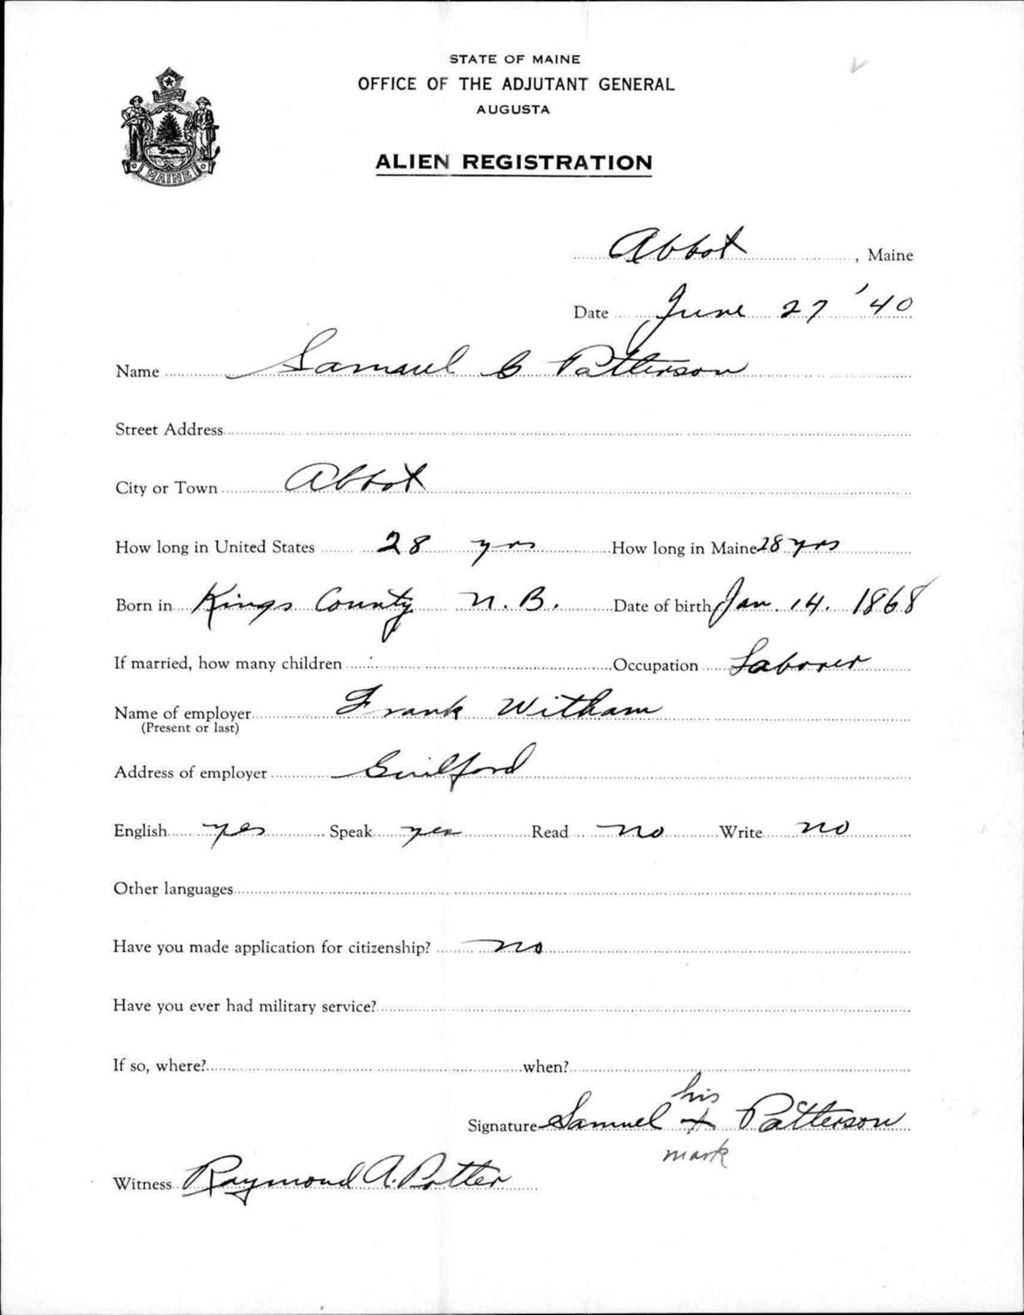 STATE OF MAINE
OFFICE OF THE ADJUTANT GENERAL
AUGUSTA
MAINE
ALIEN REGISTRATION
Abbot, Maine
Date June 27 '40
Name Samuel G Patterson
Street Address
City or Town Abbot
How long in United States 28 yrs How long in Maine 28 yrs
Born in Kings County N. B. Date of birth Jan. 14. 1868
If married, how many children Occupation Laborer
Name of employer Frank Witham
(Present or last)
Address of employer Guilford
English yes Speak yes Read no Write no
Other languages
Have you made application for citizenship? no
Have you ever had military service?
If so, where? when?
his
Signature Samuel x Patterson
mark
Witness Raymond A. Potter